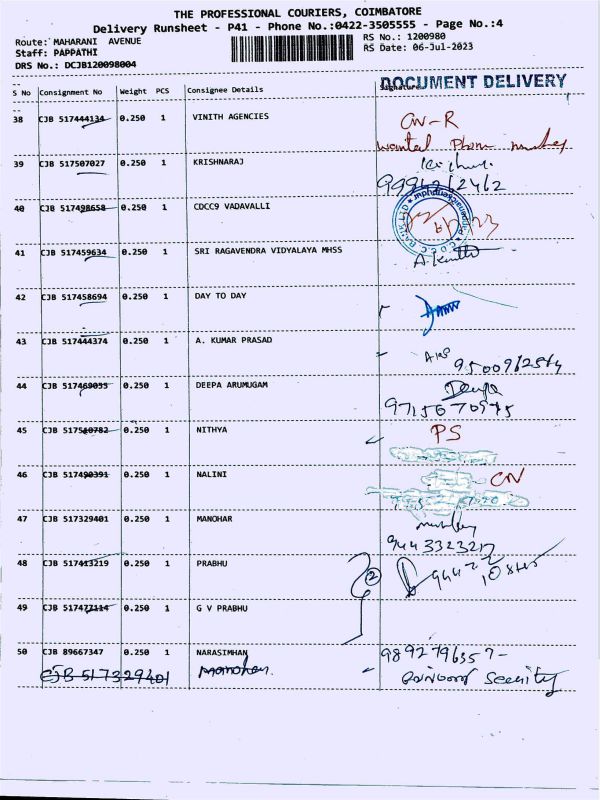 THE PROFESSIONAL COURIERS, COIMBATORE
Delivery Runsheet - P41 - Phone No.:0422-3505555 - Page No.:4
Route: MAHARANI AVENUE RS No.: 1200980
Staff: PAPPATHI RS Date: 06-Jul-2023
DRS No.: DCJB120098004
DOCUMENT DELIVERY
S No Consignment No Weight PCS Consignee Details Signature
38 CJB 517444134 0.250 1 VINITH AGENCIES CN-R
wanted Phone number
39 CJB 517507027 0.250 1 KRISHNARAJ
40 CJB 517498658 0.250 1 CDCC9 VADAVALLI
41 CJB 517459634 0.250 1 SRI RAGAVENDRA VIDYALAYA MHSS
42 CJB 517458694 0.250 1 DAY TO DAY
43 CJB 517444374 0.250 1 A. KUMAR PRASAD
44 CJB 517469055 0.250 1 DEEPA ARUMUGAM Deepa
45 CJB 517510782 0.250 1 NITHYA PS
46 CJB 517490391 0.250 1 NALINI CN
47 CJB 517329401 0.250 1 MANOHAR
9443323217
48 CJB 517413219 0.250 1 PRABHU 2
49 CJB 517477114 0.250 1 G V PRABHU
50 CJB 89667347 0.250 1 NARASIMHAN 9892796357-
CJB 517329401 manohar Security